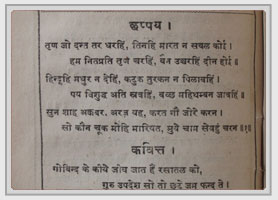 छप्पय ।
तृण जो दन्त तर धरहिं, तिनहि मारत न सबल कोई ।
हम नितप्रति तृण चरहिं, बैन उच्चरहिं दीन होई ॥
हिन्दुहि मधुर न देहिं, कटुक तुरकन न पिलावहिं ।
पय विशुद्ध अति स्रवहिं, बच्छ महिथम्बन जावहिं ॥
सुन शाह अकबर, अरज यह, करत गौ जोरे करन ।
सो कौन चूक मोहि मारियत, मुये चाम सेवइं चरन ॥१॥
कवित्त ।
गोविन्द के कीये जीव जात हैं रसातल कों,
गुरु उपदेश सो तो छुटे जम फन्द तें ।